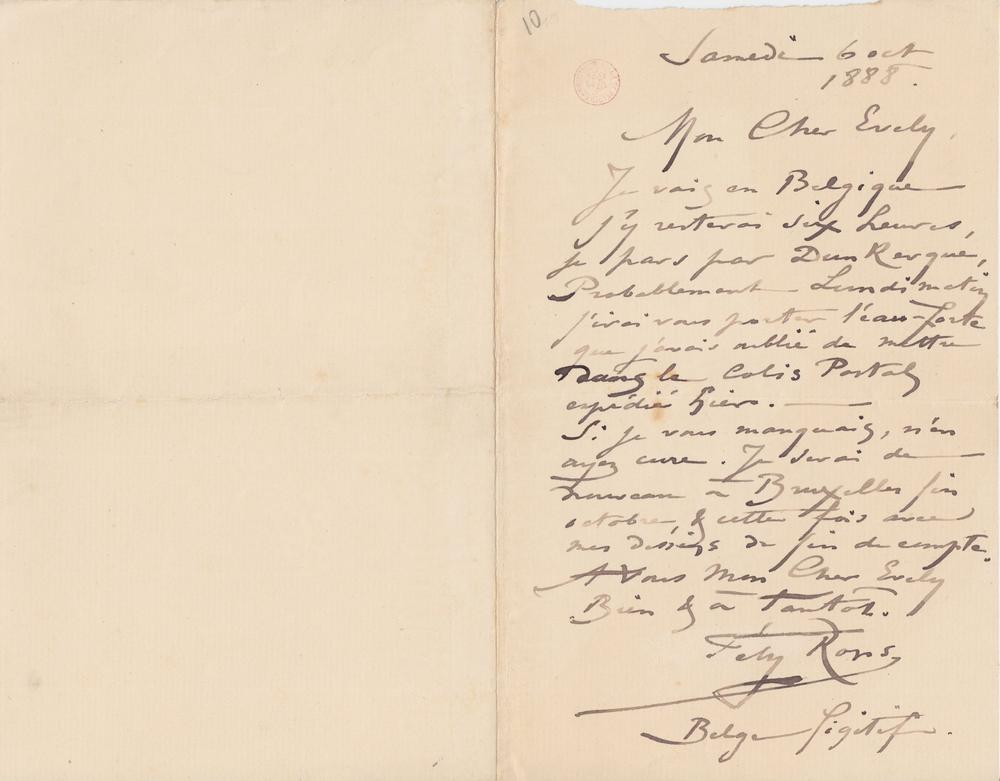 10
Samedi 6 oct
1888.
Mon Cher Evely,
Je vais en Belgique
j'y resterai six heures,
je pars par DunKerque,
Probablement Lundi matin
j'irai vous porter l'eau-forte
que j'avais oublié de mettre
dans le Colis Postal
expédié hier. —
Si je vous manquais, n'en
ayez cure. Je serai de
nouveau à Bruxelles fin
octobre, & cette fois avec
mes dessins de fin de compte.
A Vous Mon Cher Evely
Bien & à Tantôt.
Fély Rops
Belge